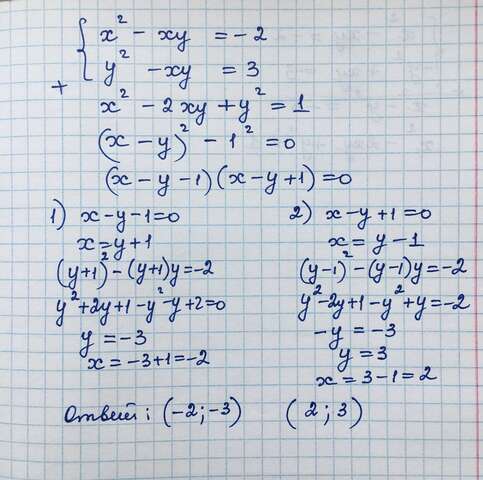 { x² - xy = -2
+ y² - xy = 3
x² - 2xy + y² = 1
(x - y)² - 1² = 0
(x - y - 1)(x - y + 1) = 0
1) x - y - 1 = 0
x = y + 1
(y+1)² - (y+1)y = -2
y² + 2y + 1 - y² - y + 2 = 0
y = -3
x = -3 + 1 = -2
2) x - y + 1 = 0
x = y - 1
(y-1)² - (y-1)y = -2
y² - 2y + 1 - y² + y = -2
-y = -3
y = 3
x = 3 - 1 = 2
Ответ: (-2; -3) (2; 3)